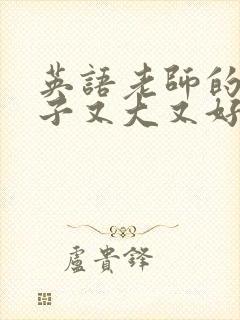 英語老師的
子又大又好
盧貴鋒